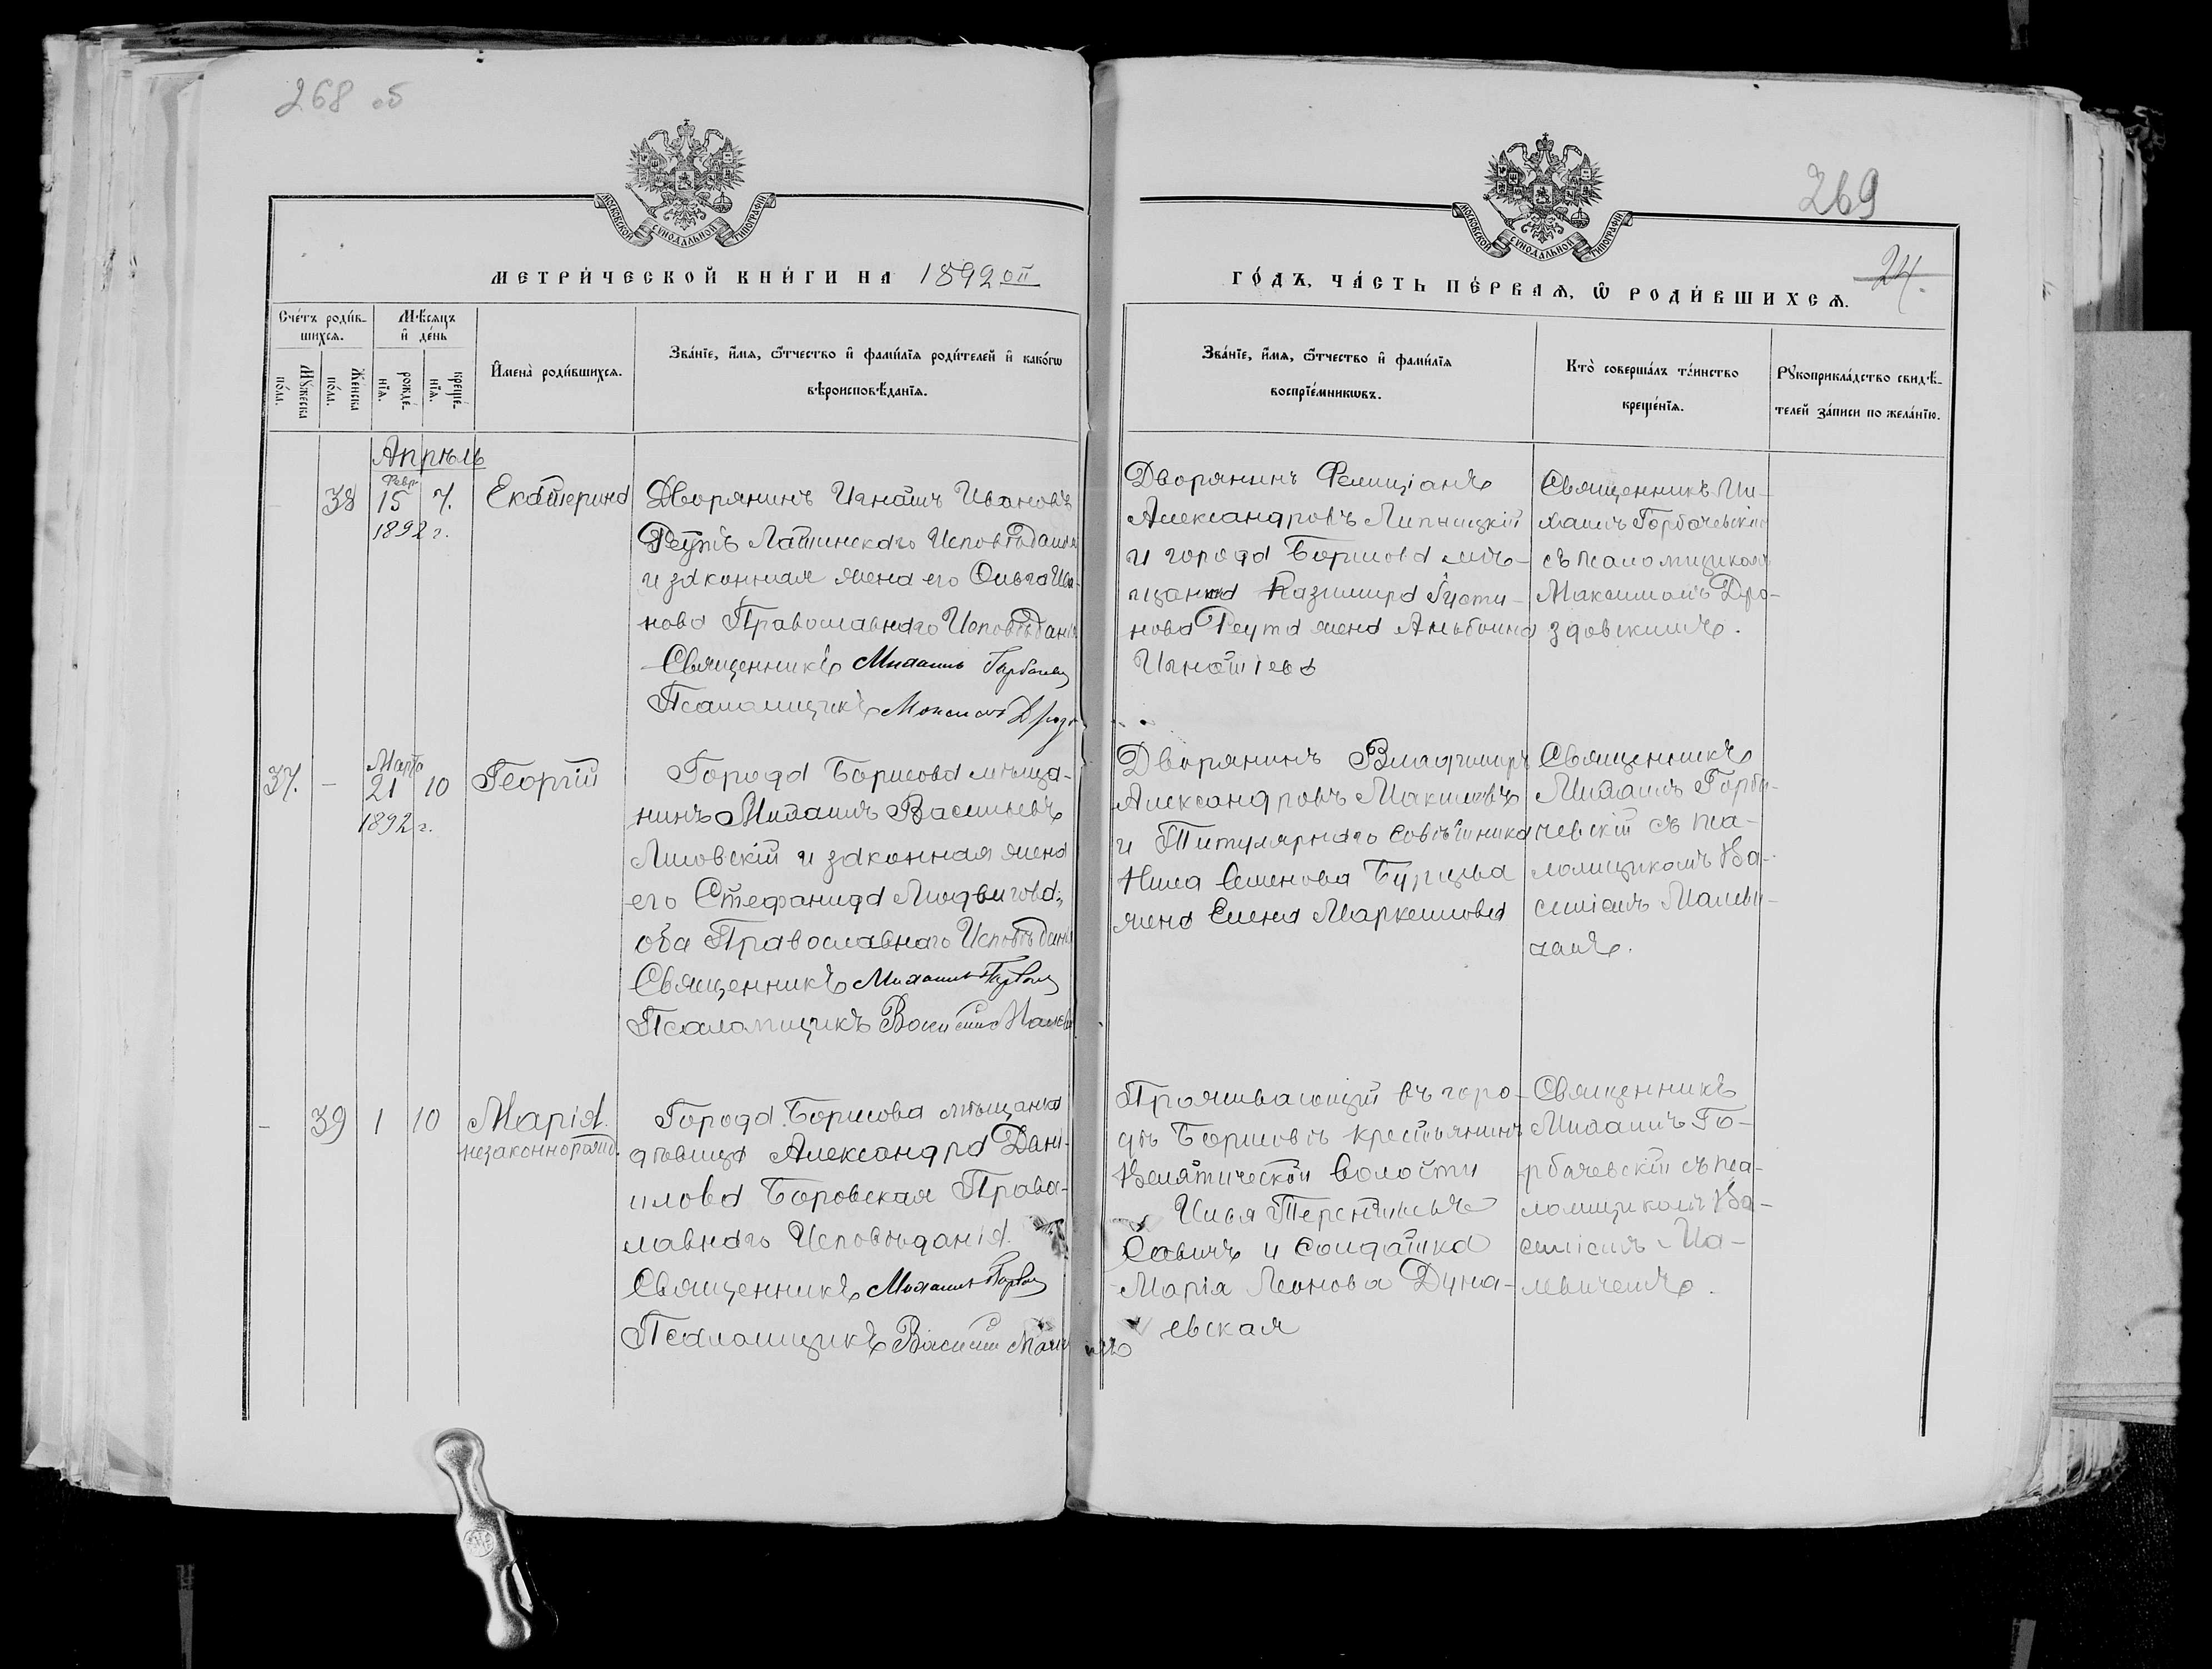 268 об
269
24.
МОСКОВСКОЙ СУНОДАЛЬНОЙ ТИПОГРАФІИ
МОСКОВСКОЙ СУНОДАЛЬНОЙ ТИПОГРАФІИ
МЕТРИ́ЧЕСКОЙ КНИ́ГИ НА 1892ой
ГО́ДЪ, ЧА́СТЬ ПЕ́РВАЯ, Ѽ РОДИ́ВШИХСЯ.
Сче́тъ роди́в-
шихся.
Му́жеска
по́ла.
Же́нска
по́ла.
Мѣ́сяцъ
и҆ де́нь
рожде́-
нїя.
креще́-
нїя.
И҆мена̀ роди́вшихся.
Зва́нїе, и҆́мя, ѻ҆́тчество и҆ фами́лїя роди́телей и҆ како́гѡ
вѣроисповѣ́данїя.
Зва́нїе, и҆́мя, ѻ҆́тчество и҆ фами́лїя
воспрїе́мникѡвъ.
Кто̀ соверша́лъ та́инство
креще́нїя.
Рꙋкоприкла́дство свидѣ́-
телей за́писи по жела́нїю.
Апрѣль
38
Февр.
15
1892 г.
7.
Екатерина
Дворянинъ Игнатъ Ивановъ
Реутъ Латинскаго Исповѣданія
и законная жена его Ольга Ива-
нова Православнаго Исповѣданія
Священникъ Михаилъ Горбачев
Псаломщикъ Максимъ Дрозд
Дворянинъ Фелиціанъ
Александровъ Липницкій
и города Борисова мѣ-
щанина Казимира Густи-
нова Реута жена Альбина
Игнатіева
Священникъ Ми-
хаилъ Горбачевскій
съ псаломщикомъ
Максимомъ Дро-
здовскимъ.
37.
-
Марта
21
1892 г.
10
Георгій
Города Борисова мѣща-
нинъ Михаилъ Васильевъ
Лисовскій и законная жена
его Стефанида Людвигова;
оба Православнаго Исповѣданія
Священникъ Михаилъ Горбач
Псаломщикъ Василій Малев
Дворянинъ Владимиръ
Александровъ Макшеевъ
и Титулярнаго Совѣтника
Нила Семенова Бурцева
жена Елена Маркеллова
Священникъ
Михаилъ Горба-
чевскій съ пса-
ломщикомъ Ва-
силіемъ Малеви-
чемъ.
-
39
1
10
Марія.
незаконнорожд.
Города Борисова мѣщанка
дѣвица Александра Дані-
илова Боровская Право-
лавнаго Исповѣданія.
Священникъ Михаилъ Горбач
Псаломщикъ Василій Малевичъ
Проживающій въ горо-
дѣ Борисовѣ крестьянинъ
Велятической волости
Илья Терентьевъ
Савичъ и солдатка
Марія Леонова Дуна-
евская
Священникъ
Михаилъ Го-
рбачевскій съ пса-
ломщикомъ Ва-
силіемъ Ма-
левичемъ.